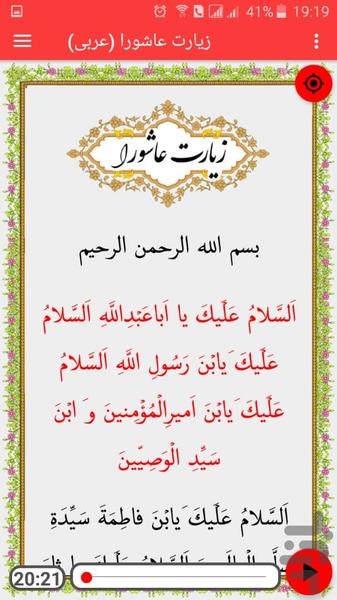 41% 19:19
زیارت عاشورا (عربی)
زیارت عاشورا
بسم الله الرحمن الرحیم
اَلسَّلامُ عَلَیْكَ یا اَباعَبْدِاللَّهِ اَلسَّلامُ
عَلَیْكَ یَابْنَ رَسُولِ اللَّهِ اَلسَّلامُ
عَلَیْكَ یَابْنَ اَمیرِالْمُؤْمِنینَ وَ ابْنَ
سَیِّدِ الْوَصِیّینَ
اَلسَّلامُ عَلَیْكَ یَابْنَ فاطِمَةَ سَیِّدَةِ
20:21